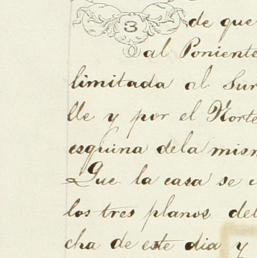 3 de que
al Poniente
limitada al Sur
lle y por el Norte
esquina dela mism
Que la casa se
los tres planos del
cha de este dia y